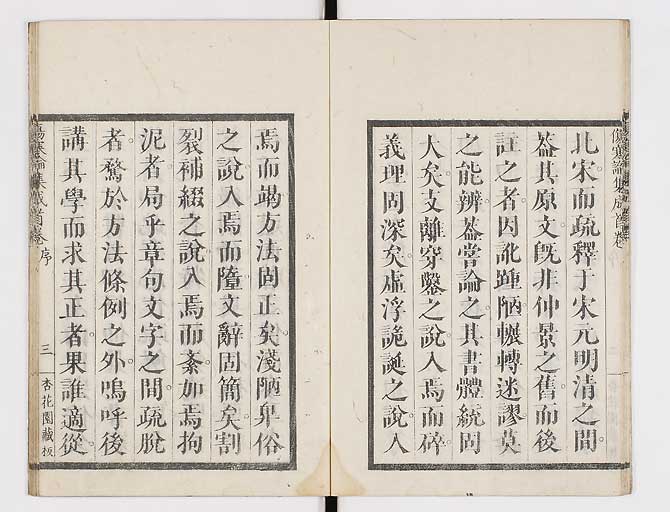 北宋而疏釋于宋元明清之間
蓋其原文既非仲景之舊而後
註之者因訛踵陋輾轉迷謬莫
之能辨蓋嘗論之其書體統固
大矣支離穿鑿之說入焉而碎
義理固深矣虛浮詭誕之說入
焉而竭方法固正矣淺陋卑俗
之說入焉而墮文辭固簡矣割
裂補綴之說入焉而紊如焉拘
泥者局乎章句文字之間疏脫
者騖於方法條例之外嗚呼後
講其學而求其正者果誰適從
傷寒論集成首卷 序 三 杏花園藏板